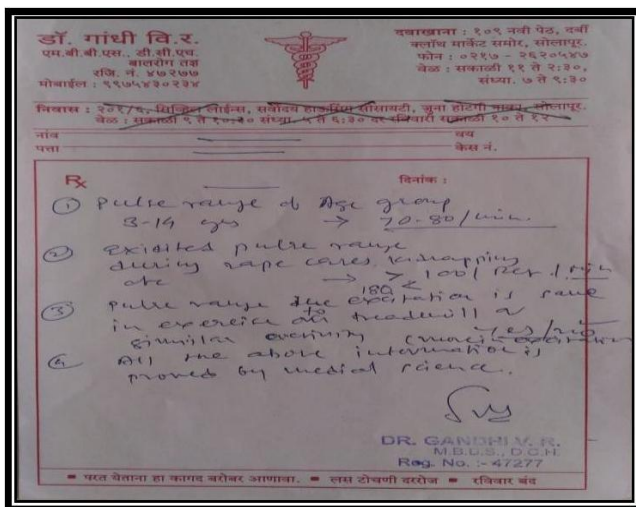 डॉ. गांधी वि.र.
एम.बी.बी.एस., डी.सी.एच.
बालरोग तज्ञ
रजि. नं. ४७२७७
मोबाईल : ९९७५४३०२३४
दवाखाना : १०९ नवी पेठ, दर्बी
क्लॉथ मार्केट समोर, सोलापूर.
फोन : ०२१७ - २६२०५४७
वेळ : सकाळी ११ ते २:३०,
संध्या. ७ ते ९:३०
निवास : २०१/६, सिव्हिल लाईन्स, सर्वोदय हाऊसिंग सोसायटी, जुना होटगी नाका, सोलापूर.
वेळ : सकाळी ९ ते १०:३० संध्या. ५ ते ६:३० दर रविवारी सकाळी १० ते १२
नांव वय
पत्ता केस नं.
Rx दिनांक :
① Pulse range of Age group
3-14 yrs → 70-80/min.
② Exibited pulse range
during rape cases kidnapping
etc → > 100/ Per /min
180 <
③ Pulse range due to excitation is same
in exercise on treadmill or
simmilar activity Yes/No
(more in excitation
④ All the above information is
proved by medical science.
DR. GANDHI V. R.
M.B.B.S., D.C.H.
Reg. No. :- 47277
परत येताना हा कागद बरोबर आणावा. लस टोचणी दररोज रविवार बंद